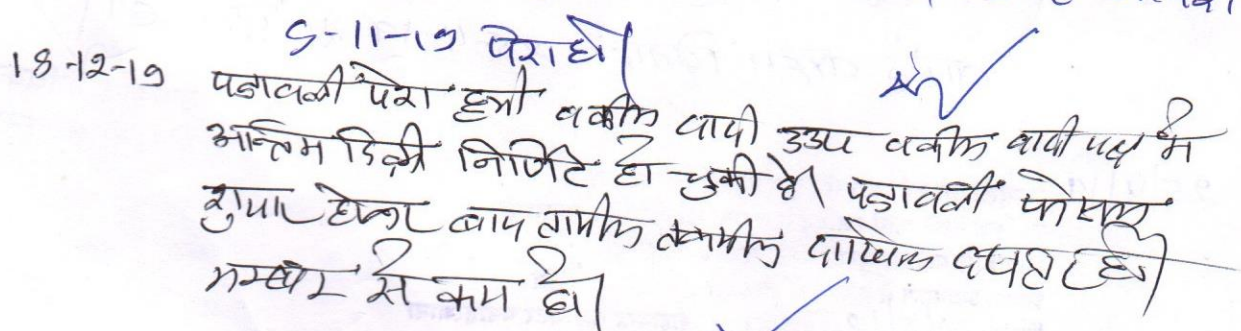 9-11-19 पेश हो।
18-12-19 पत्रावली पेश हुयी वकील वादी उप वकील वादी पक्ष में
अन्तिम डिक्री निर्णित हो चुकी है। पत्रावली फैसल
शुमार होकर बाद तामील तकमील दाखिल दफ्तर हो।
नम्बर से कम हो।